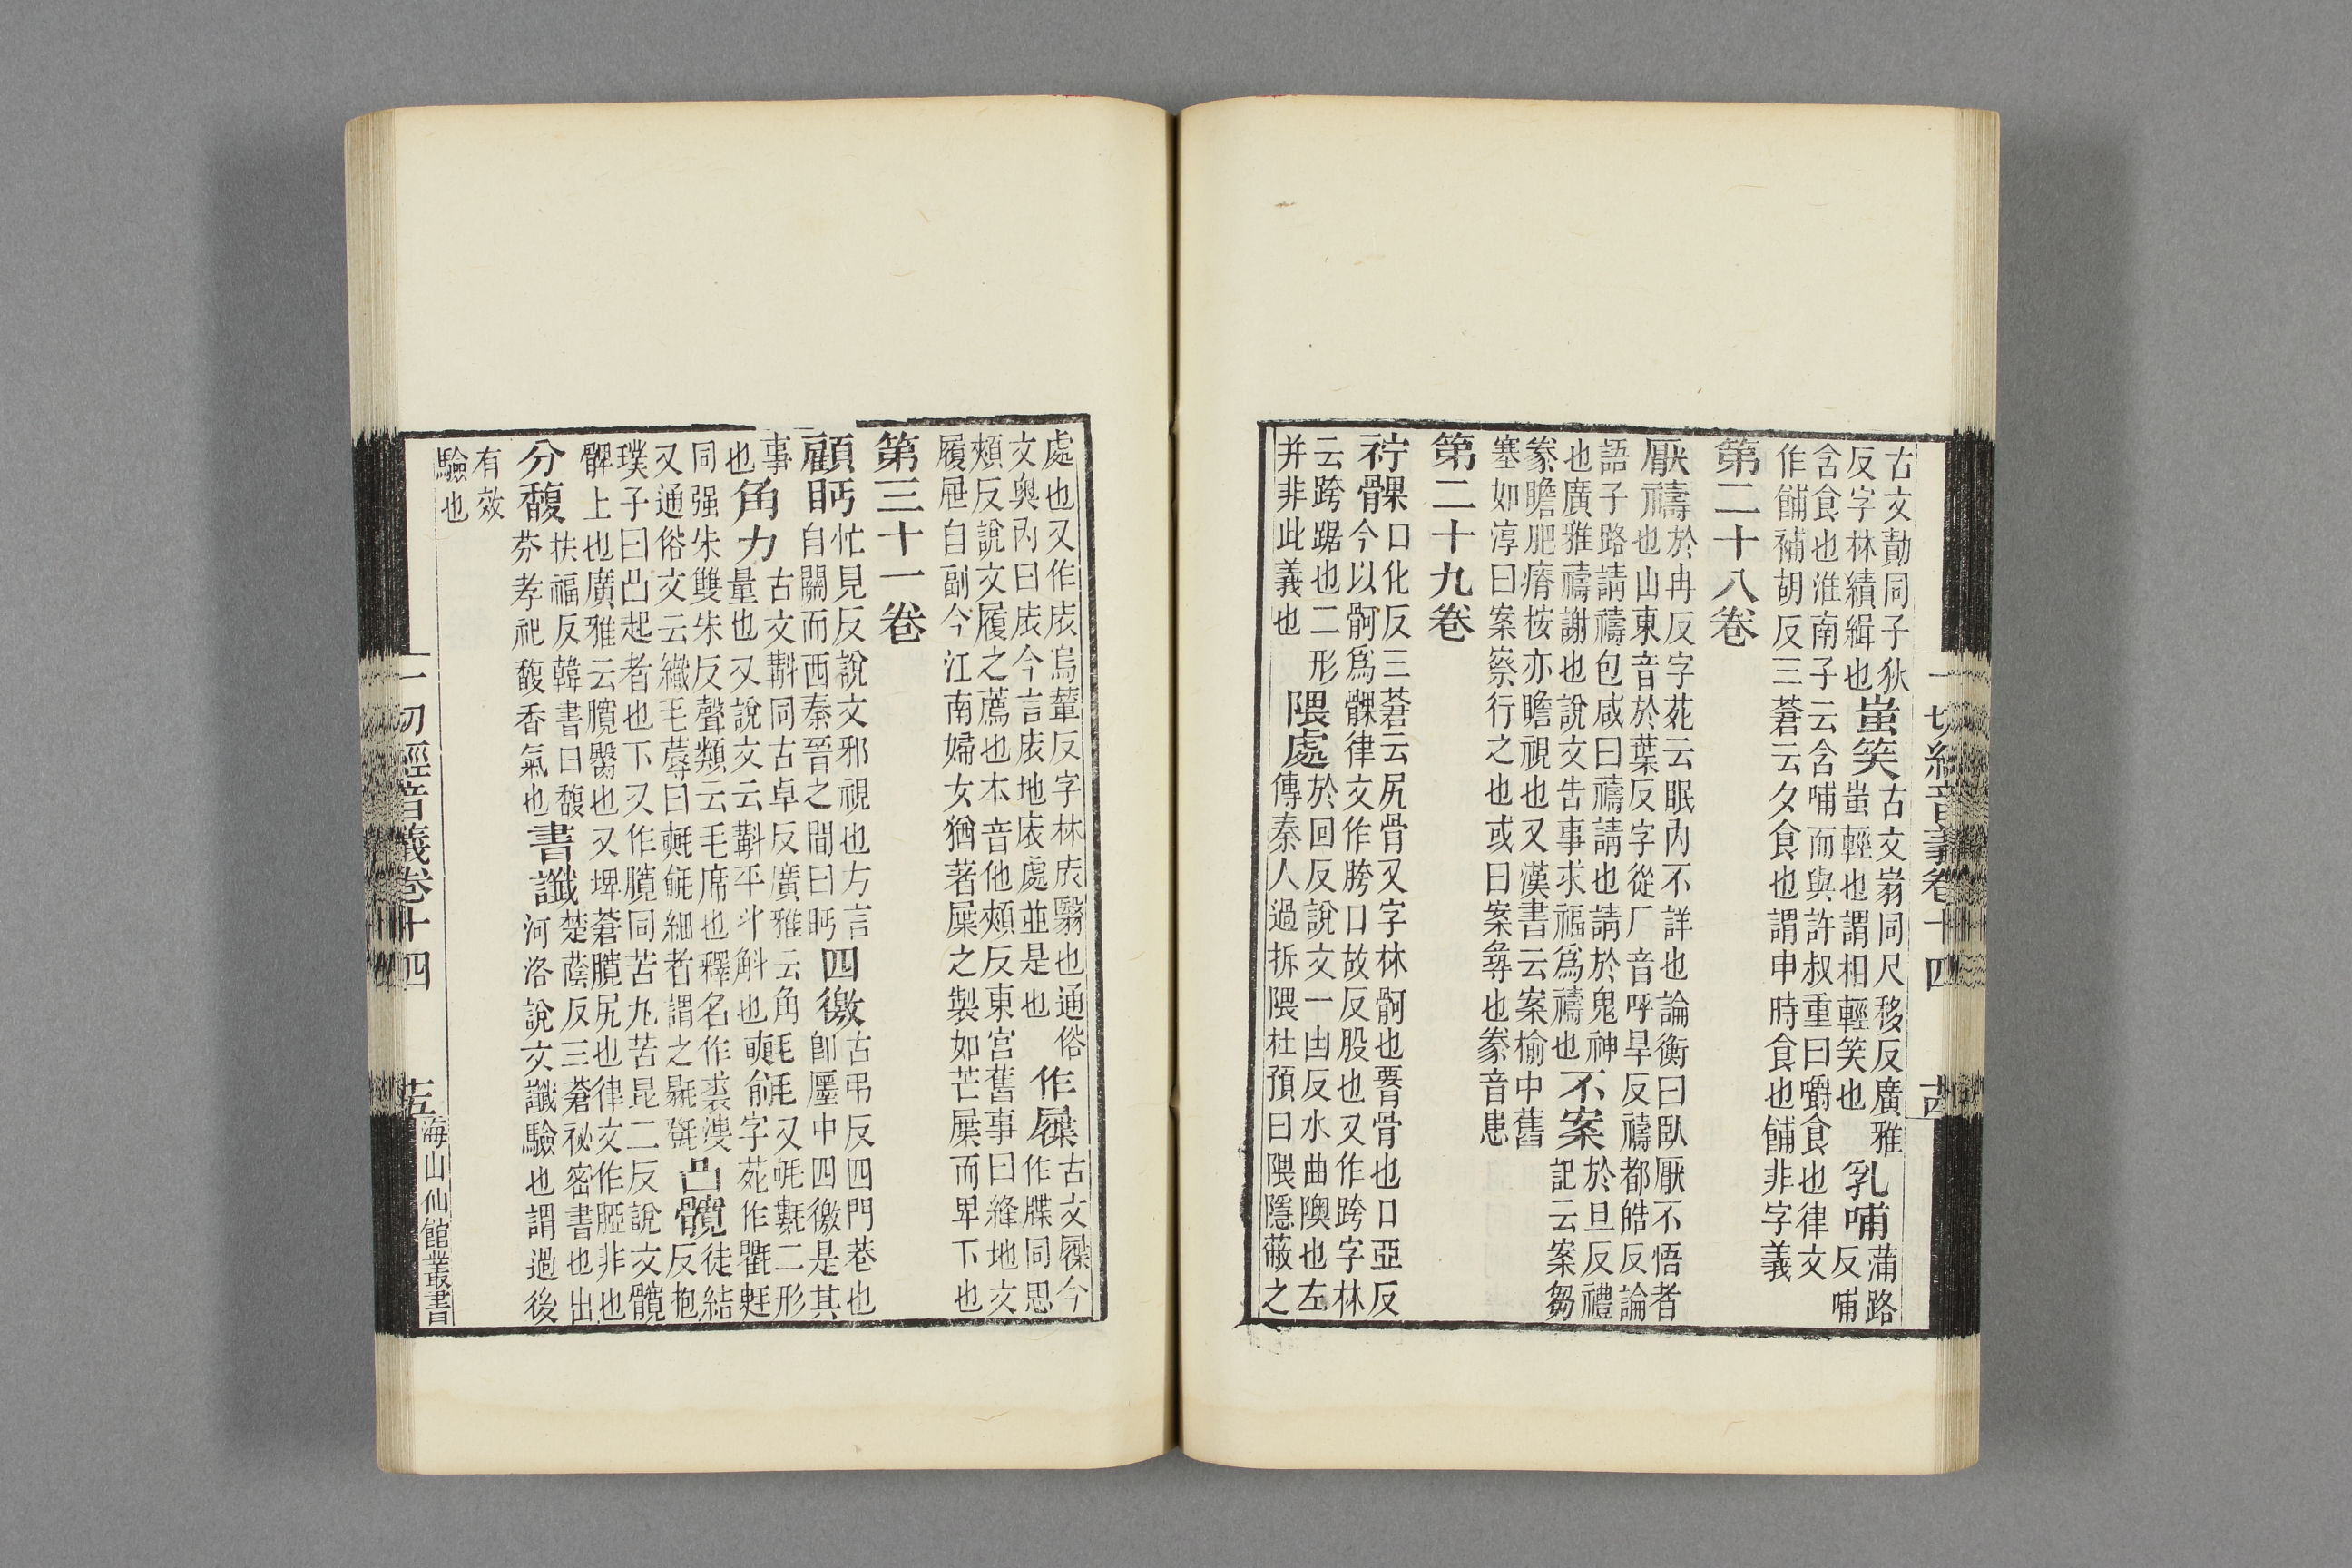 古文勣同子狄
反字林績緝也
蚩笑
古文㱀同尺移反廣雅
蚩輕也謂相輕笑也
乳哺
蒲路
反哺
含食也淮南子云含哺而與許叔重曰嚼食也律文
作餔補胡反三蒼云夕食也謂申時食也餔非字義
第二十八卷
厭禱
於冉反字苑云眠內不詳也論衡曰臥厭不悟者
也山東音於葉反字從厂音呼旱反禱都皓反論
語子路請禱包咸曰禱請也請於鬼神
也廣雅禱謝也說文告事求福爲禱也
不案
於旦反禮
記云案芻
豢瞻肥瘠桉亦瞻視也又漢書云案榆中舊
塞如淳曰案察行之也或曰案尋也豢音患
第二十九卷
骨
髁口化反三蒼云尻骨又字林䯊也䯒骨也口亞反
今以䯊爲髁律文作胯口故反股也又作跨字林
云跨踞也二形
并非此義也
隈處
於回反說文一凷反水曲隩也左
傳秦人過拆隈杜預曰隈隱蔽之
一切經音義卷十四
十四
處也又作庡烏輩反字林庡翳也通俗
文奧內曰庡今言庡地庡處並是也
作屧
古文屧今
作㒎同思
頰反說文履之薦也本音他頰反東宮舊事曰絳地文
履屉自副今江南婦女猶著屧之製如芒屧而卑下也
第三十一卷
顧眄
忙見反說文邪視也方言
自關而西秦晉之間曰眄
四徼
古弔反四門巷也
卽廛中四徼是其
事
也
角力
古文斠同古卓反廣雅云角
量也又說文云斠平斗斛也
㲚毹
毛又㲚氀二形
字苑作氍
同强朱雙朱反聲類云毛席也釋名作裘溲
又通俗文云織毛蓐曰氍毹細者謂之㲪㲮
凸髖
徒結
反抱
璞子曰凸起者也下又作臗同苦九苦昆二反說文髖
髀上也廣雅云臗臀也又埤蒼臗尻也律文作䏶非也
分馥
扶福反韓書曰馥
芬孝祀馥香氣也
書讖
楚蔭反三蒼祕密書也出
河洛說文讖驗也謂過後
有效
驗也
一切經音義卷十四
十五
海山仙館叢書